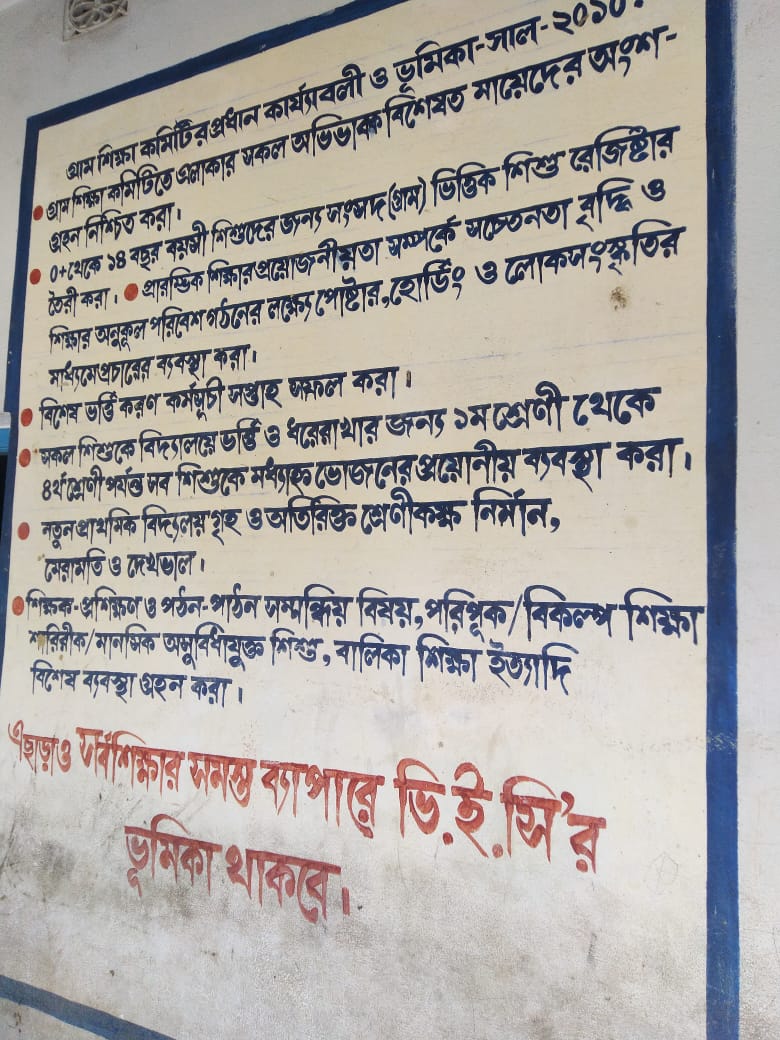 গ্রাম শিক্ষা কমিটির প্রধান কার্য্যাবলী ও ভূমিকা-সাল-২০১০.
গ্রাম শিক্ষা কমিটিতে এলাকার সকল অভিভাবক বিশেষত মায়েদের অংশ-
গ্রহন নিশ্চিত করা।
০+থেকে ১৪ বছর বয়সী শিশুদের জন্য সংসদ (গ্রাম) ভিত্তিক শিশু রেজিষ্টার
তৈরী করা। প্রারম্ভিক শিক্ষার প্রয়োজনীয়তা সম্পর্কে সচেতনতা বৃদ্ধি ও
শিক্ষার অনুকূল পরিবেশ গঠনের লক্ষ্যে পোষ্টার, হোর্ডিং ও লোকসংস্কৃতির
মাধ্যমে প্রচারের ব্যবস্থা করা।
বিশেষ ভর্ত্তি করণ কর্মসূচী সপ্তাহ সফল করা।
সকল শিশুকে বিদ্যালয়ে ভর্ত্তি ও ধরে রাখার জন্য ১ম শ্রেণী থেকে
৪র্থ শ্রেণী পর্যন্ত সব শিশুকে মধ্যাহ্ন ভোজনের প্রয়োনীয় ব্যবস্থা করা।
নতুন প্রাথমিক বিদ্যলয় গৃহ ও অতিরিক্ত শ্রেণীকক্ষ নির্মান,
মেরামতি ও দেখভাল।
শিক্ষক-প্রশিক্ষণ ও পঠন-পাঠন সম্মন্ধিয় বিষয়, পরিপূক/বিকল্প শিক্ষা
শারিরীক/মানসিক অসুবিধাযুক্ত শিশু, বালিকা শিক্ষা ইত্যাদি
বিশেষ ব্যবস্থা গ্রহন করা।
এছাড়াও সর্বশিক্ষার সমস্ত ব্যাপারে ভি.ই.সি'র
ভূমিকা থাকবে।